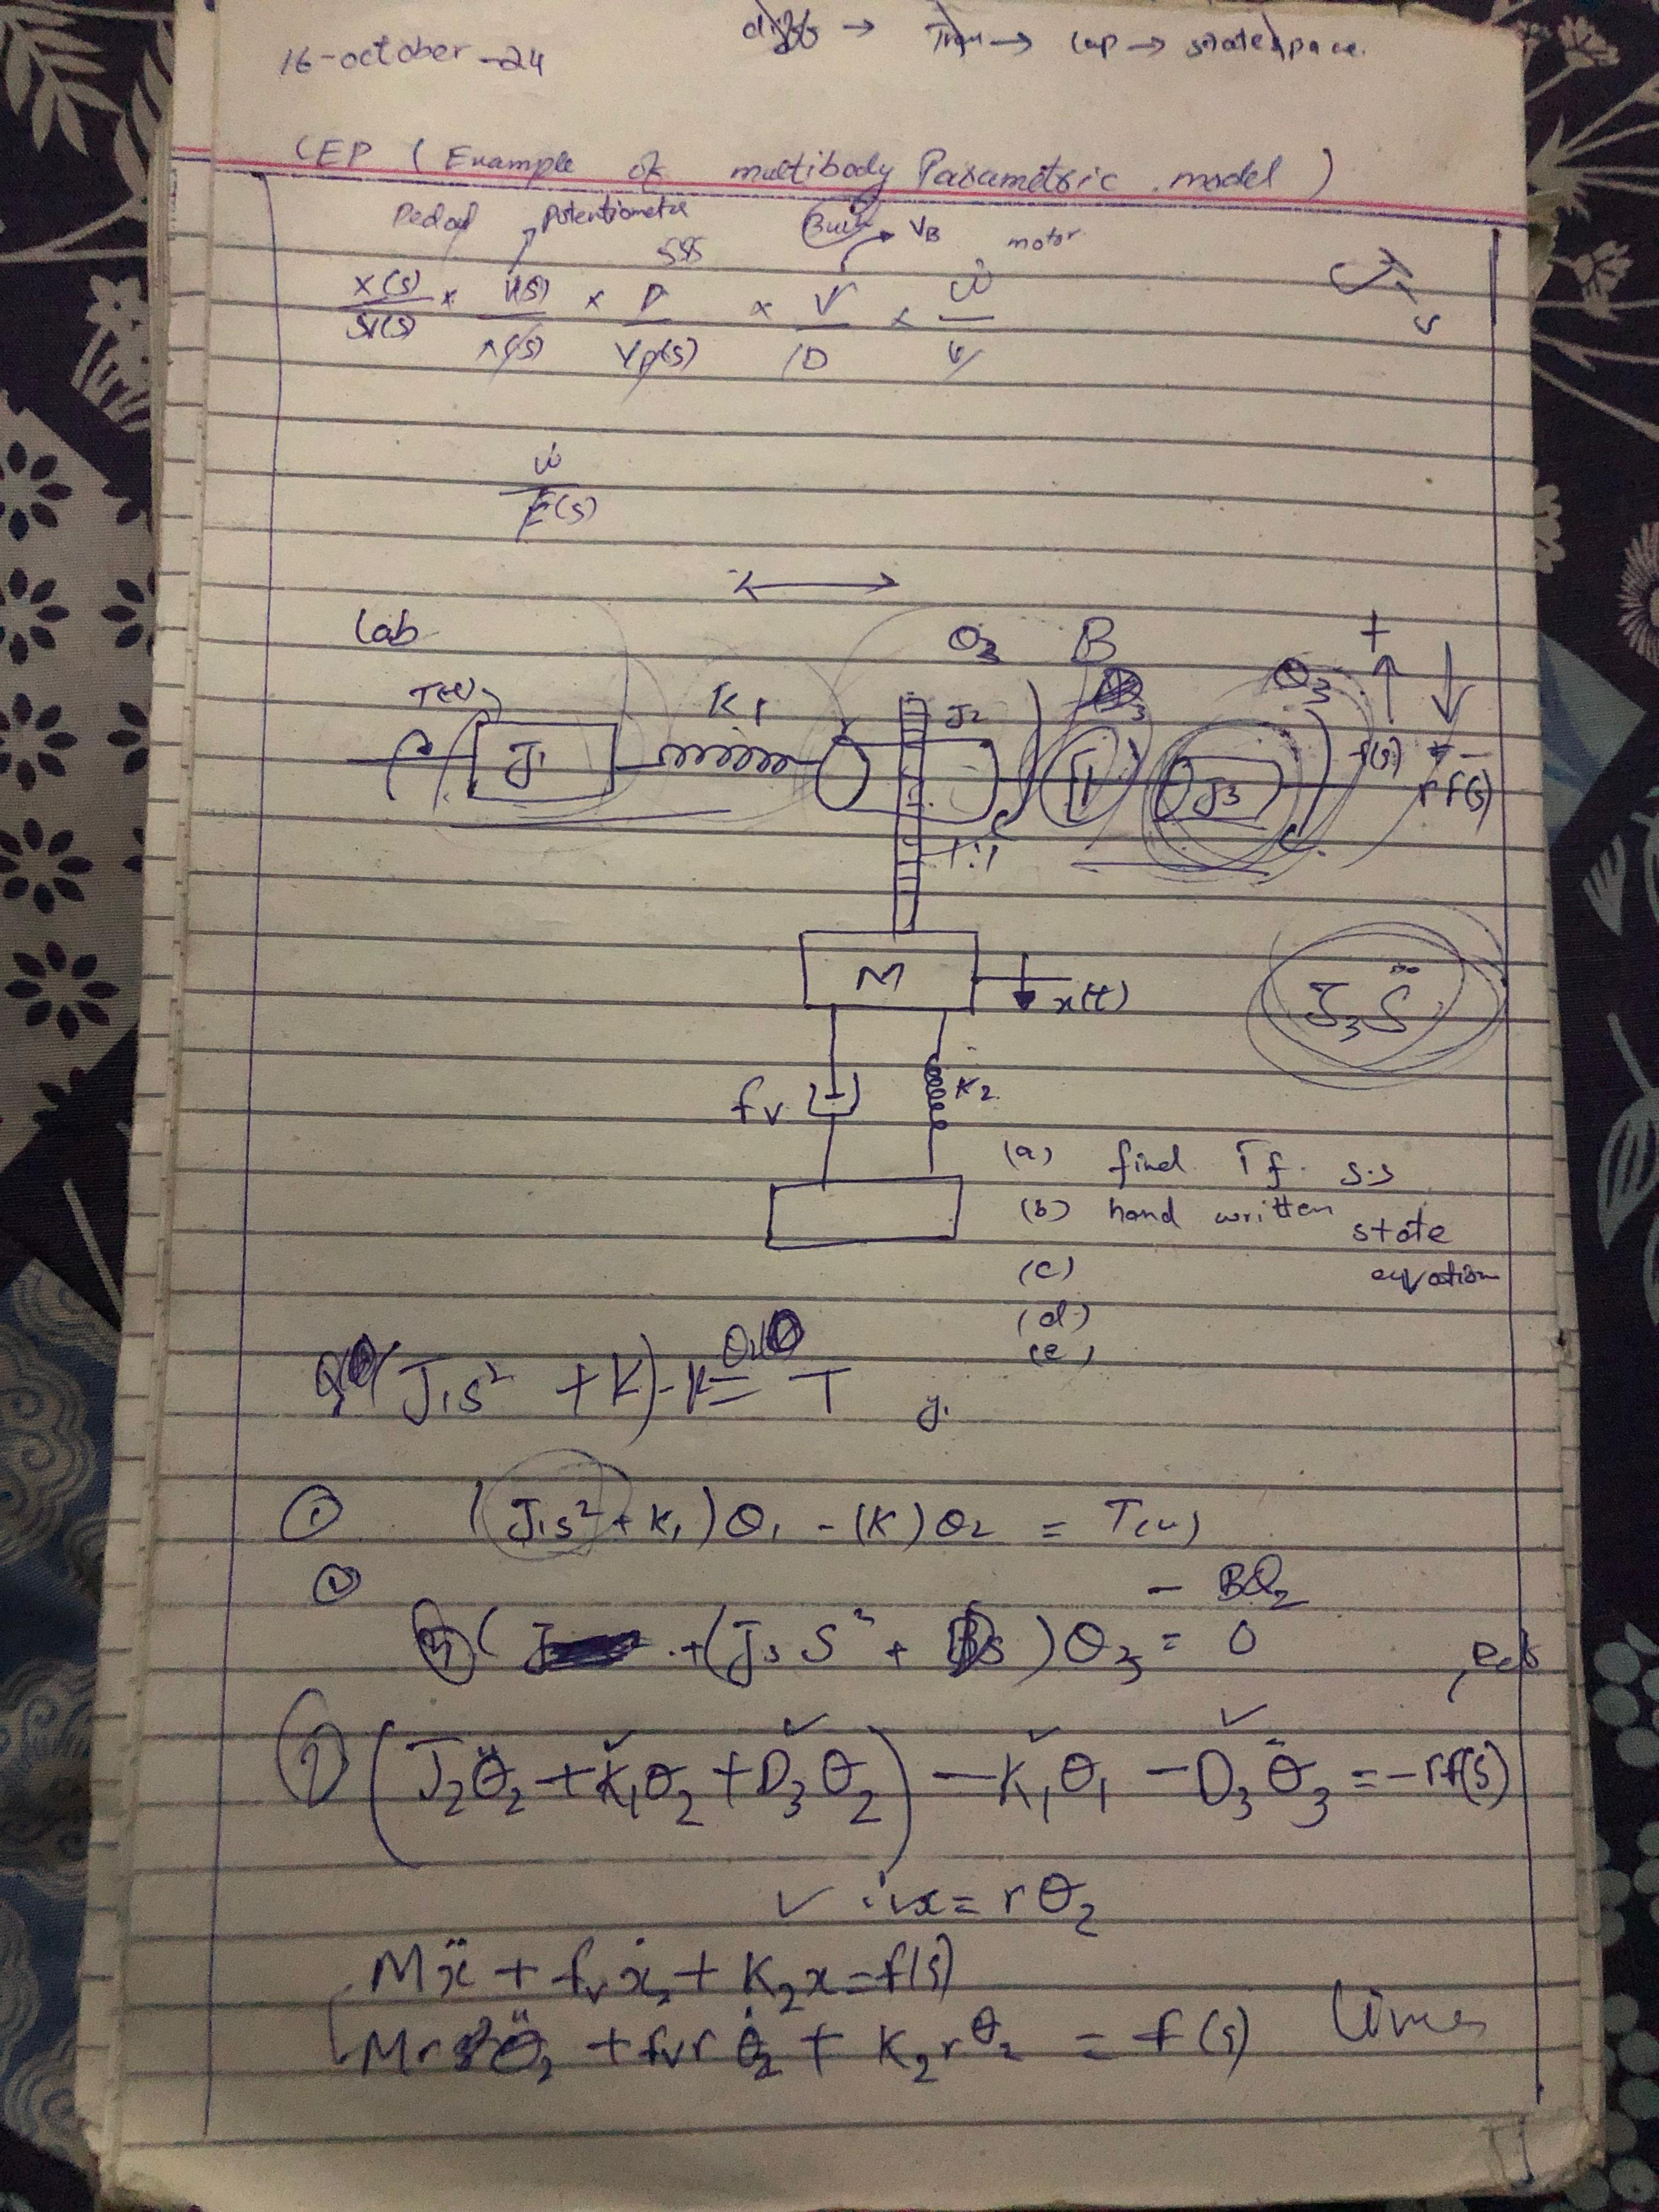 16-october-24
Lap → statespace.
CEP (Example of multibody Parametric model)
Pedal potentiometer Buck VB motor
X(s) × V(s) × D × V × ω̇
Vp(s) D
ω̇
E(s)
Lab
θ3 B θ3 +
T(t) K1 J2
J1 J3 f(s) rf(s)
1:1
M x(t)
J3S̈
fv K2
(a) find Tf. s.s
(b) hand written state
equation
(c)
(d)
(e)
(J1s² + K) - K = T
y.
① (J1s² + K1)θ1 - (K)θ2 = T(s)
② - Bθ2
+(J3 S² + Bs)θ3 = 0
② (J2θ̈2 + K1θ2 + D3θ̇2) - K1θ1 - D3θ̇3 = -rf(s)
x = rθ2
Mẍ + fvẋ + K2x = f(s)
Mrθ̈2 + fvrθ̇2 + K2rθ2 = f(s)